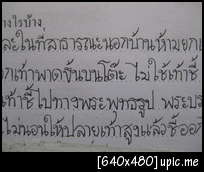 างไรบ้าง
ละในที่สาธารณะนอกบ้านห้ามยก
กเท้าพาดขึ้นบนโต๊ะ ไม่ใช้เท้าชี้
เท้าชี้ไปทางพระพุทธรูป พระบร
ไม่นอนให้ปลายเท้าสูงแล้วชี้ออก
[640x480] upic.me